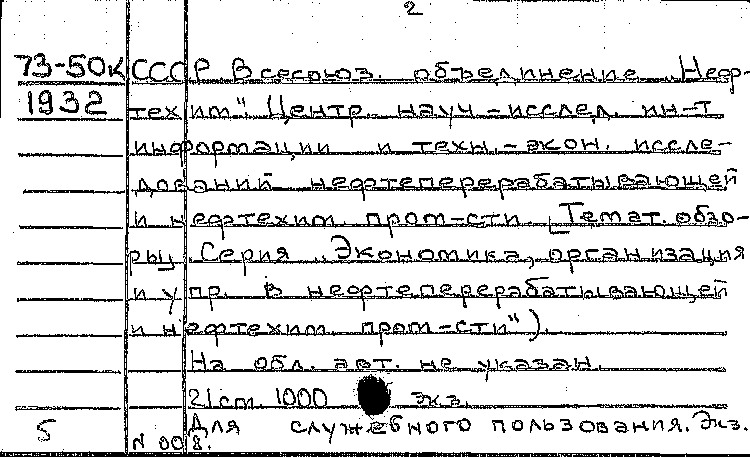 2
73-50к СССР. Всесоюз. объединение „Неф-
1932 техим". Центр. науч-исслед. ин-т
информации и техн.-экон. иссле-
дований нефтеперерабатывающей
и нефтехим. пром-сти [Темат. обзо-
ры. Серия „Экономика, организация
и упр. в нефтеперерабатывающей
и нефтехим. пром-сти").
На обл. авт. не указан.
21 cm. 1000 экз.
5 Для служебного пользования. Экз.
N 008.